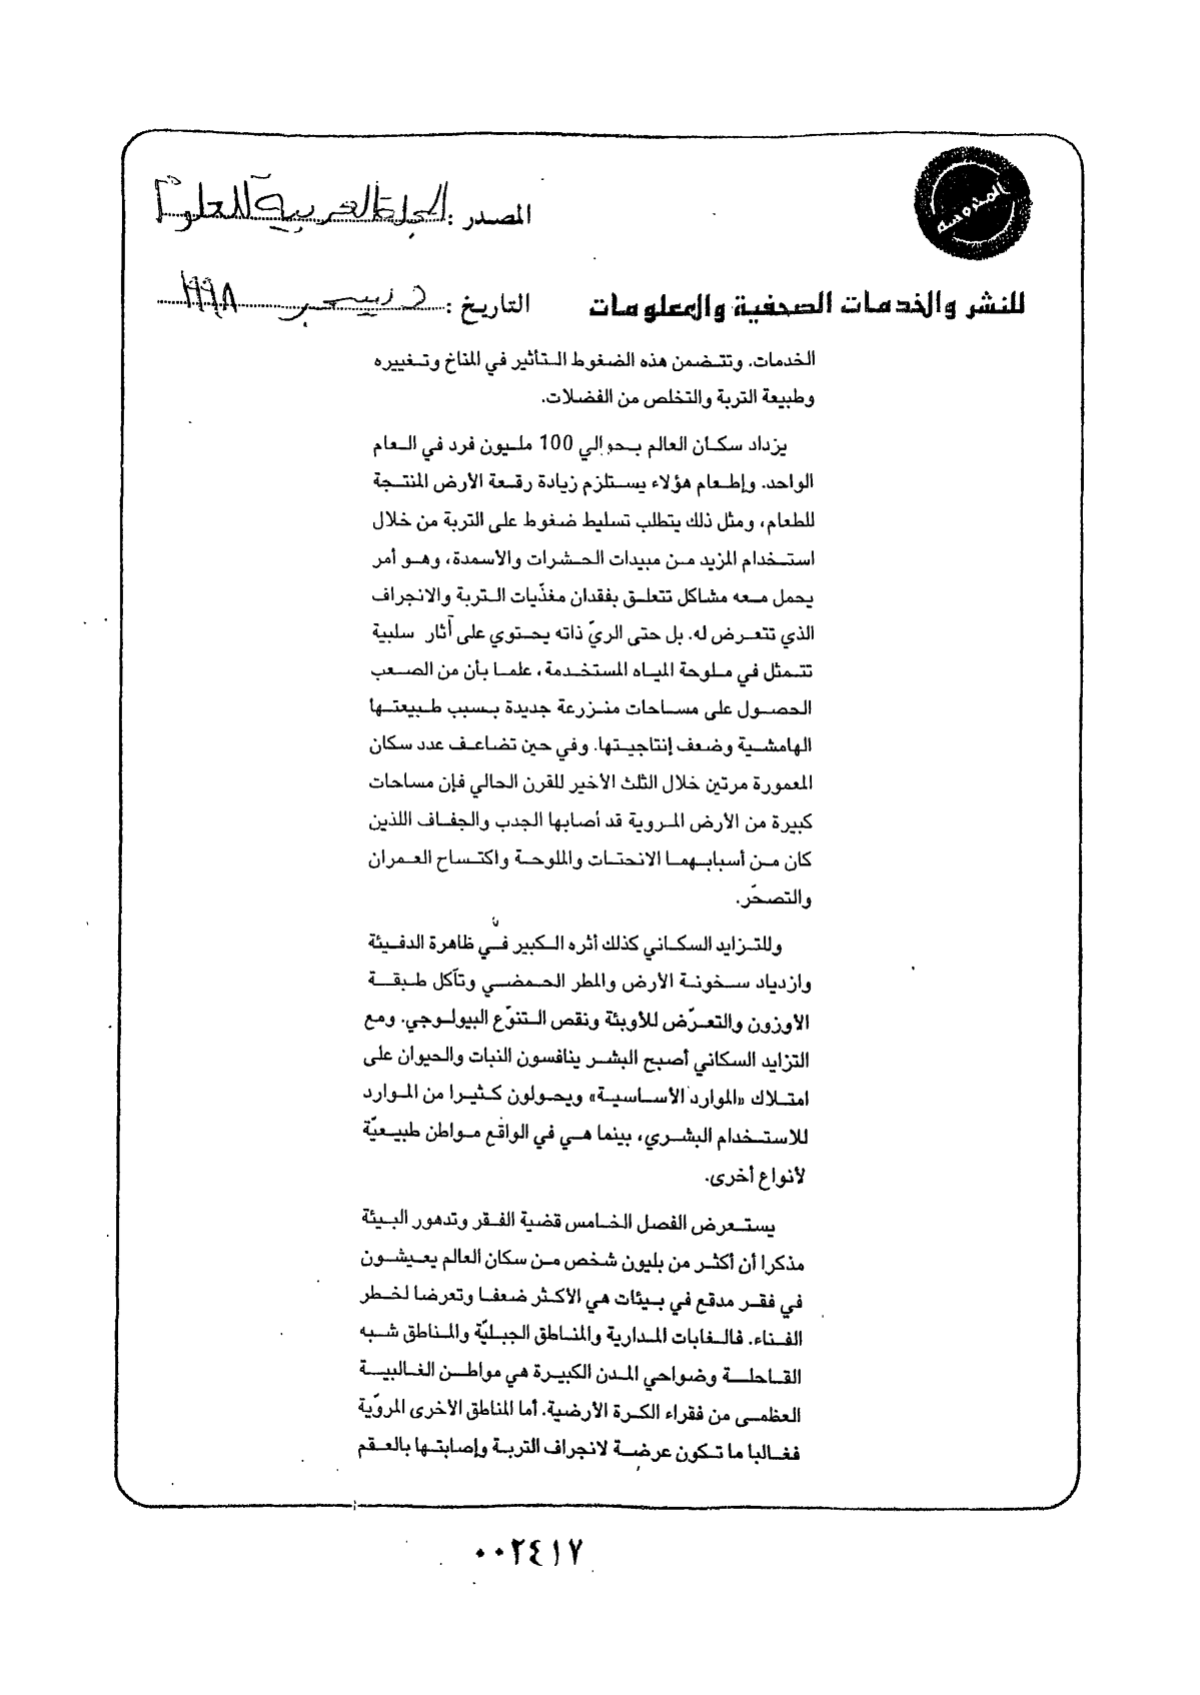 المحروسة
المصدر : المجلة العربية للعلوم
للنشر والخدمات الصحفية والمعلومات
التاريخ : ديسمبر ١٩٩٨
الخدمات. وتتضمن هذه الضغوط التأثير في المناخ وتغييره
وطبيعة التربة والتخلص من الفضلات.
يزداد سكان العالم بحوالي 100 مليون فرد في العام
الواحد. وإطعام هؤلاء يستلزم زيادة رقعة الأرض المنتجة
للطعام، ومثل ذلك يتطلب تسليط ضغوط على التربة من خلال
استخدام المزيد من مبيدات الحشرات والأسمدة، وهو أمر
يحمل معه مشاكل تتعلق بفقدان مغذّيات التربة والانجراف
الذي تتعرض له. بل حتى الريّ ذاته يحتوي على آثار سلبية
تتمثل في ملوحة المياه المستخدمة، علما بأن من الصعب
الحصول على مساحات منزرعة جديدة بسبب طبيعتها
الهامشية وضعف إنتاجيتها. وفي حين تضاعف عدد سكان
المعمورة مرتين خلال الثلث الأخير للقرن الحالي فإن مساحات
كبيرة من الأرض المروية قد أصابها الجدب والجفاف اللذين
كان من أسبابهما الانحتات والملوحة واكتساح العمران
والتصحّر.
وللتزايد السكاني كذلك أثره الكبير في ظاهرة الدفيئة
وازدياد سخونة الأرض والمطر الحمضي وتآكل طبقة
الأوزون والتعرّض للأوبئة ونقص التنوّع البيولوجي. ومع
التزايد السكاني أصبح البشر ينافسون النبات والحيوان على
امتلاك «الموارد الأساسية» ويحولون كثيرا من الموارد
للاستخدام البشري، بينما هي في الواقع مواطن طبيعيّة
لأنواع أخرى.
يستعرض الفصل الخامس قضية الفقر وتدهور البيئة
مذكرا أن أكثر من بليون شخص من سكان العالم يعيشون
في فقر مدقع في بيئات هي الأكثر ضعفا وتعرضا لخطر
الفناء. فالغابات المدارية والمناطق الجبليّة والمناطق شبه
القاحلة وضواحي المدن الكبيرة هي مواطن الغالبية
العظمى من فقراء الكرة الأرضية. أما المناطق الأخرى المرويّة
فغالبا ما تكون عرضة لانجراف التربة وإصابتها بالعقم
٠٠٢٤١٧